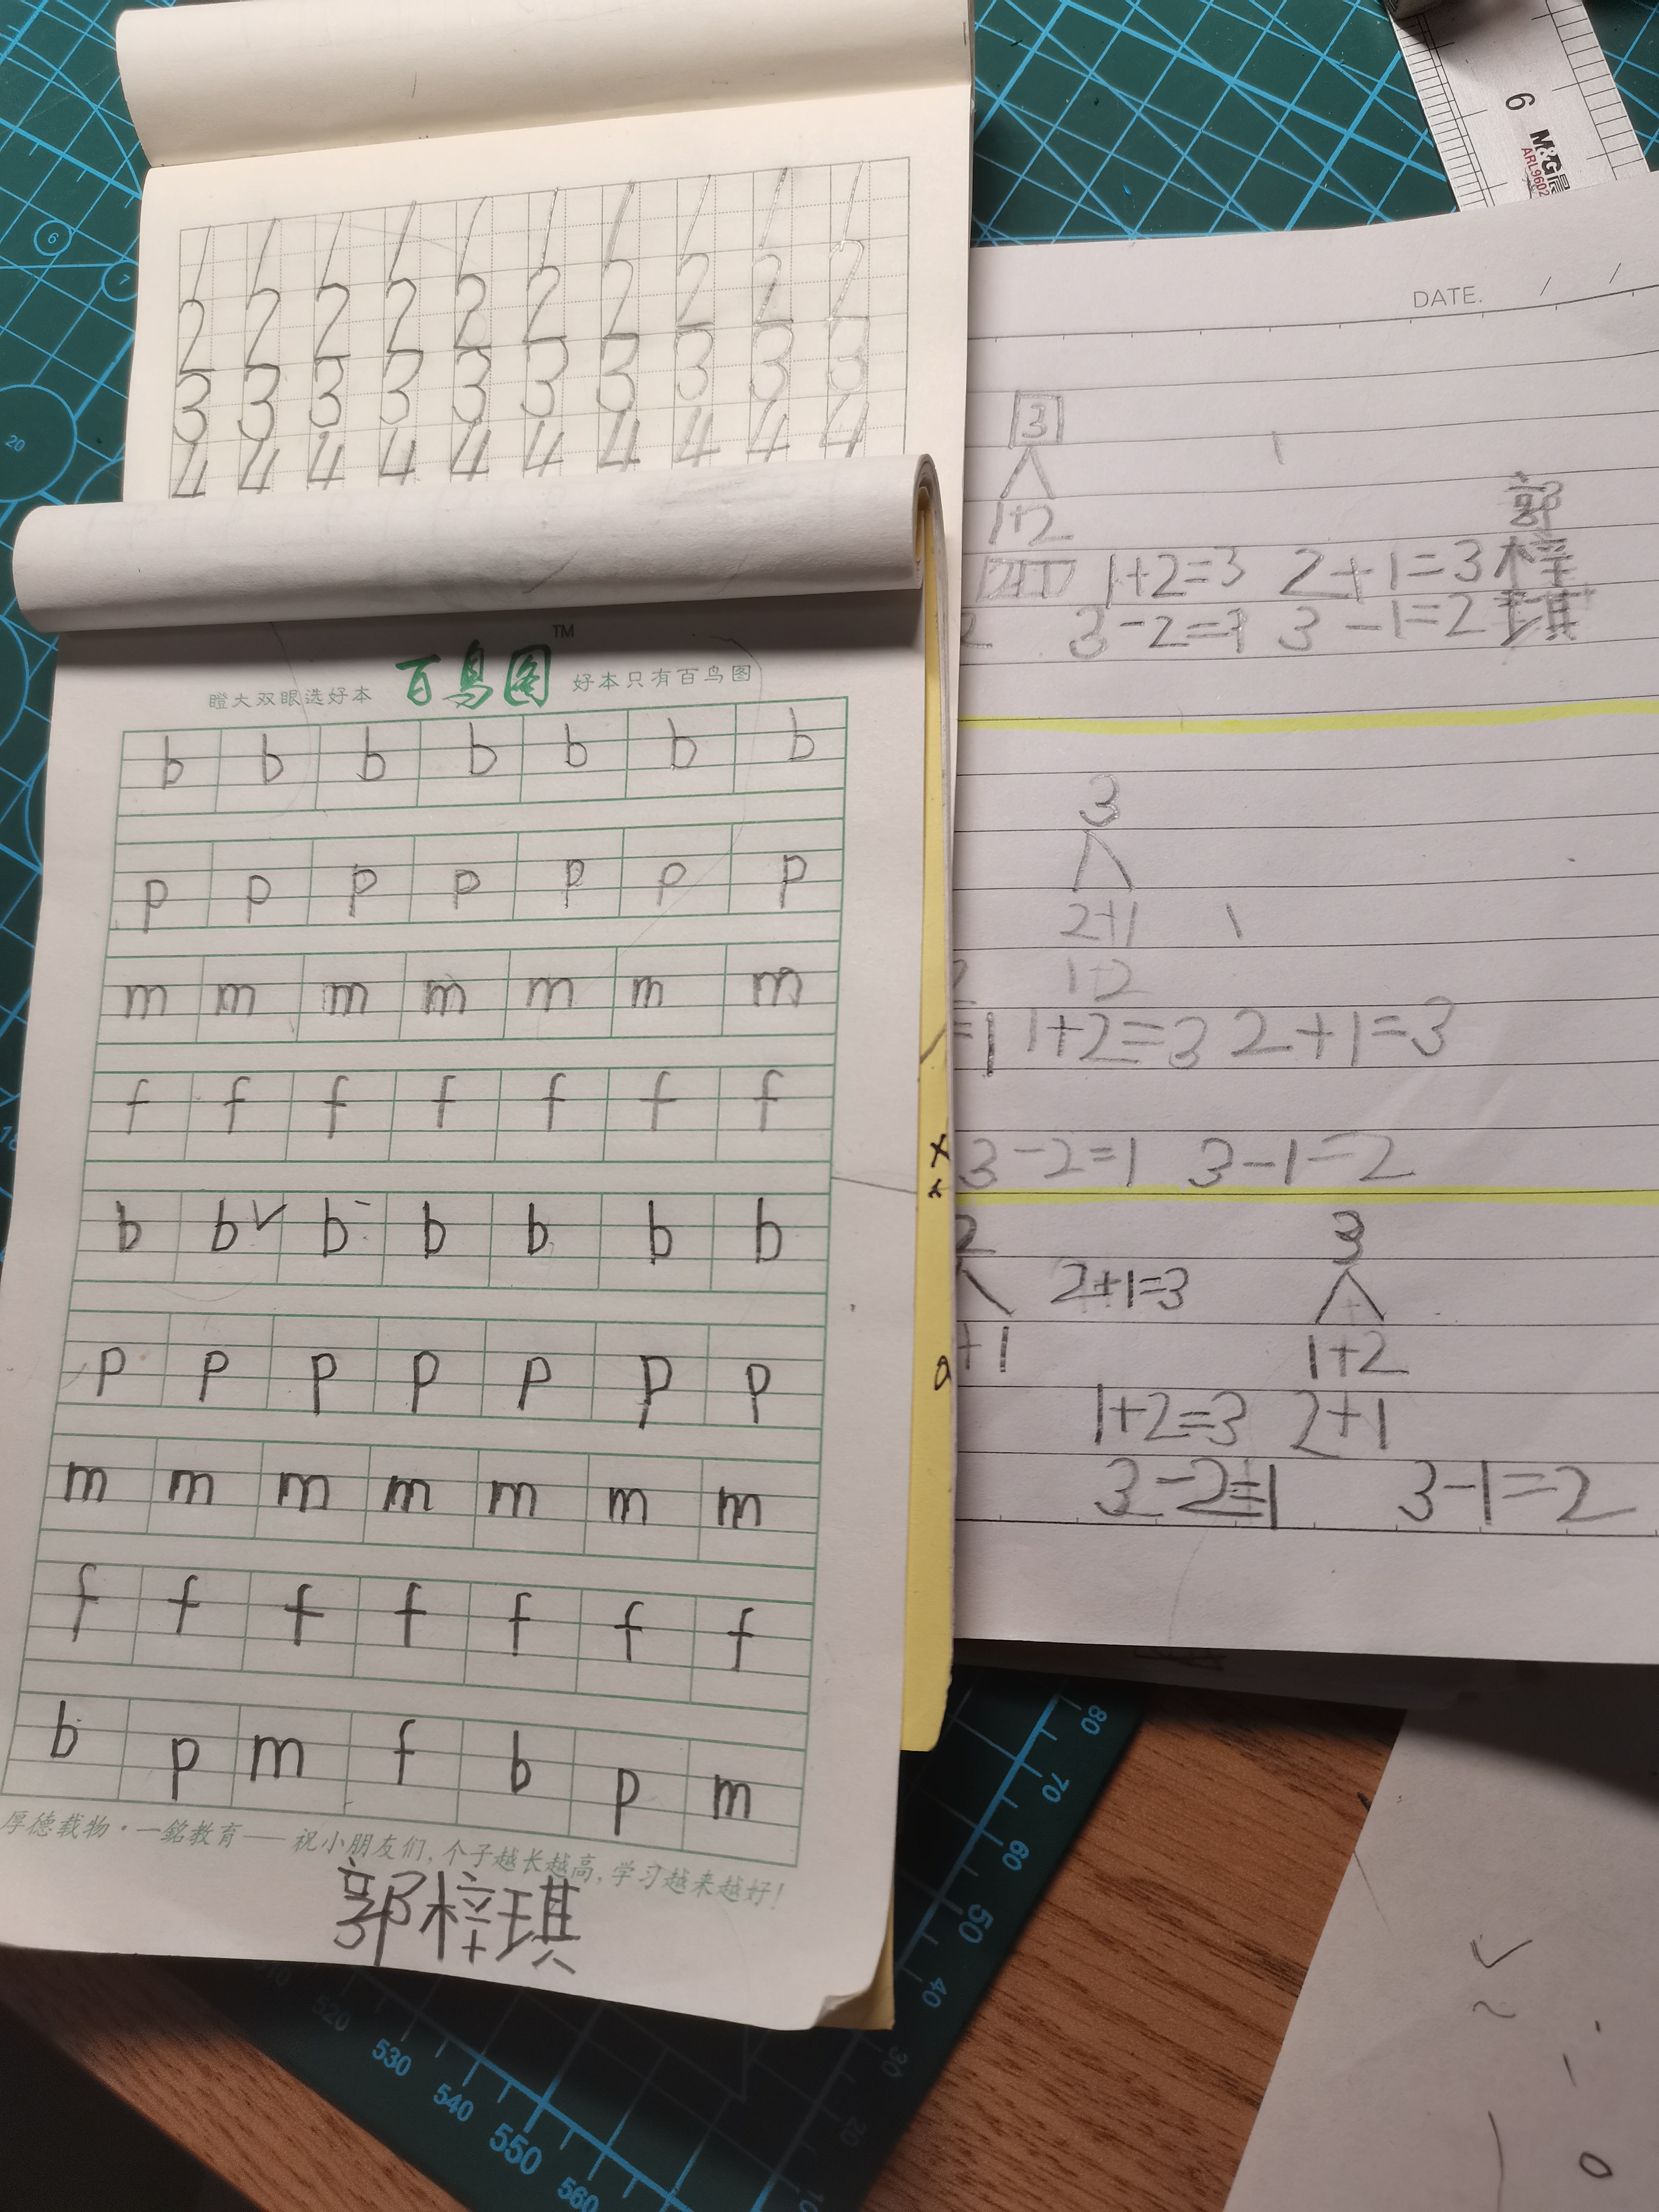 1 1 1 1 1 1 1 1 1 1
2 2 2 2 2 2 2 2 2 2
3 3 3 3 3 3 3 3 3 3
4 4 4 4 4 4 4 4 4 4
瞪大双眼选好本 百鸟图 TM 好本只有百鸟图
b b b b b b b
p p p p p p p
m m m m m m m
f f f f f f f
b b✓ b b b b b
p p p p p p p
m m m m m m m
f f f f f f f
b p m f b p m
厚德载物·一銘教育——祝小朋友们,个子越长越高,学习越来越好!
郭梓琪
6
M&G晨
ARL9602
DATE. / /
3
1+2
郭
1+2=3 2+1=3 梓
3-2= 3-1=2 琪
3
2+1
1+2
=1 1+2=3 2+1=3
3-2=1 3-1=2
2 2+1=3 3
+1 1+2
1+2=3 2+1
3-2=1 3-1=2
6
7
20
80
70
60
50
40
30
20
10
520
530
540
550
560